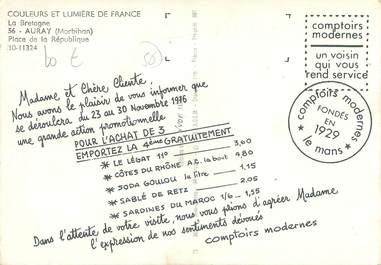 COULEURS ET LUMIÈRE DE FRANCE
La Bretagne
56 - AURAY (Morbihan)
Place de la République
10-11324
comptoirs
modernes
un voisin
qui vous
rend service
Madame et Chère Cliente,
Nous avons le plaisir de vous informer que
se déroulera du 23 au 30 Novembre 1976
une grande action promotionnelle
POUR L'ACHAT DE 3
EMPORTEZ LA 4ème GRATUITEMENT
* LE LÉGAT 11° 3,60
* CÔTES DU RHÔNE A.C. la bout 4,80
* SODA GOULOU le litre 1,15
* SABLÉ DE RETZ 2,05
* SARDINES DU MAROC 1/6 1,55
* comptoirs modernes *
FONDÉS
EN
1929
le mans
Dans l'attente de votre visite, nous vous prions d'agréer Madame
l'expression de nos sentiments dévoués
comptoirs modernes